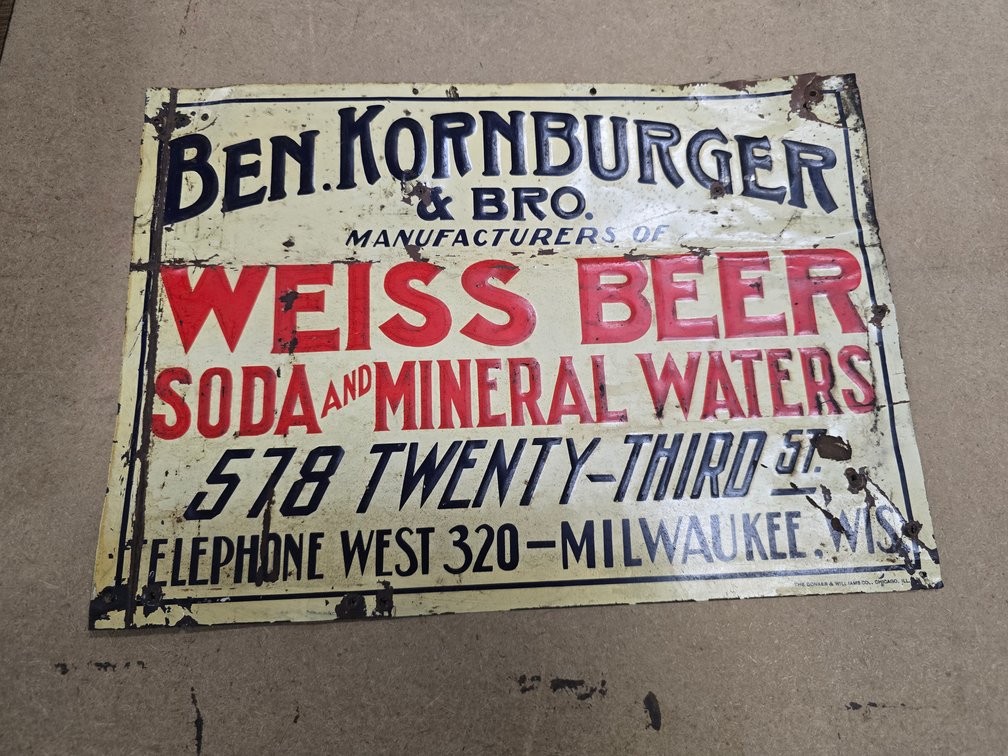 BEN. KORNBURGER
& BRO.
MANUFACTURERS OF
WEISS BEER
SODA AND MINERAL WATERS
578 TWENTY-THIRD ST.
TELEPHONE WEST 320-MILWAUKEE, WIS.
CHICAGO, ILL.